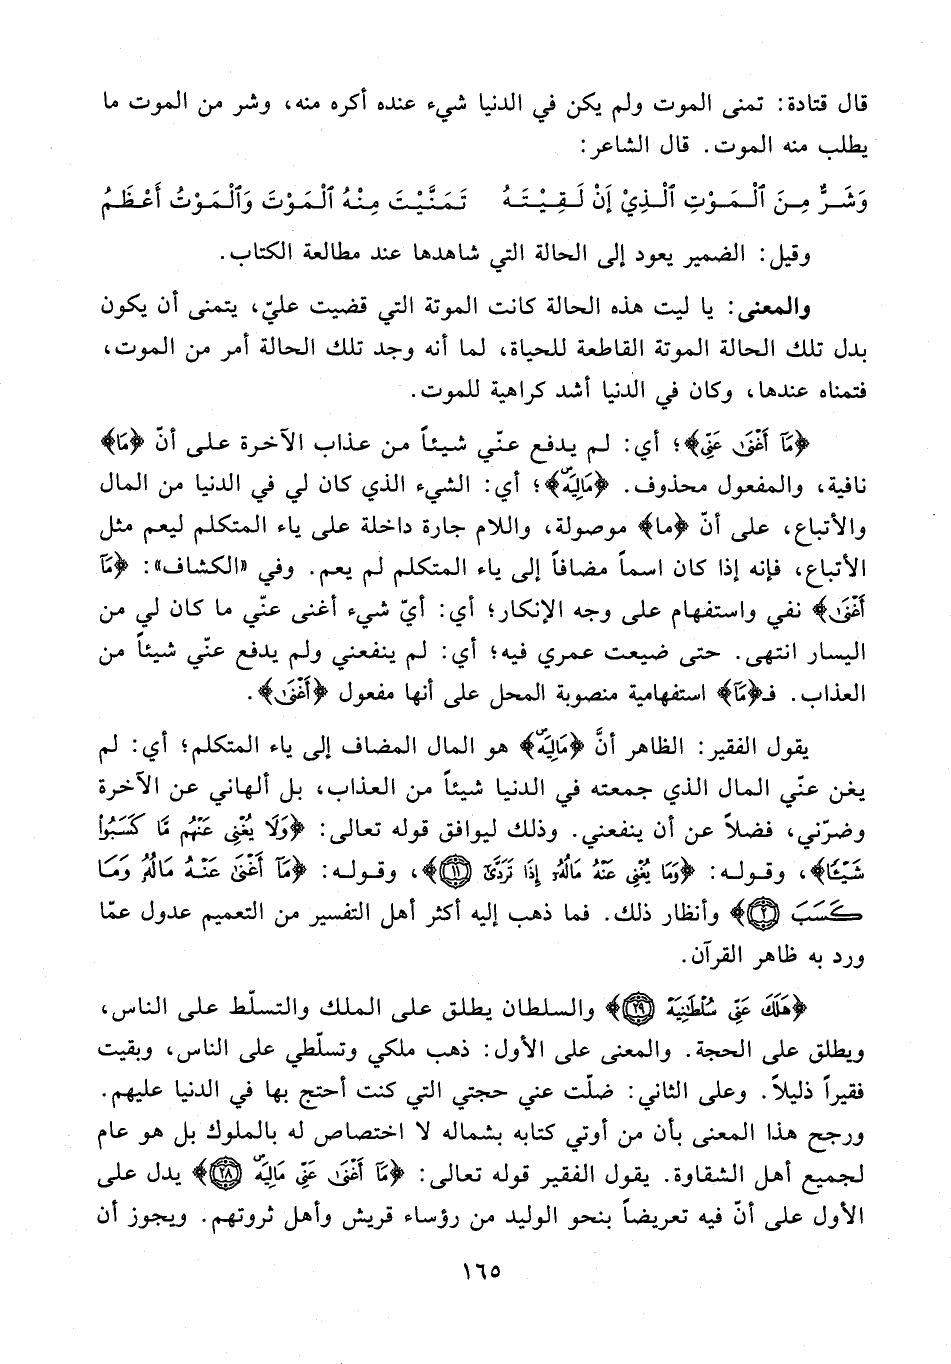 قال قتادة: تمنى الموت ولم يكن في الدنيا شيء عنده أكره منه، وشر من الموت ما
يطلب منه الموت. قال الشاعر:
وَشَـرٌّ مِـنَ ٱلْـمَـوْتِ ٱلَّـذِيْ إِنْ لَـقِـيْـتَـهُ تَـمَنَّيْـتَ مِنْـهُ ٱلْمَـوْتَ وَٱلْمَوْتُ أَعْظَـمُ
وقيل: الضمير يعود إلى الحالة التي شاهدها عند مطالعة الكتاب.
والمعنى: يا ليت هذه الحالة كانت الموتة التي قضيت عليّ، يتمنى أن يكون
بدل تلك الحالة الموتة القاطعة للحياة، لما أنه وجد تلك الحالة أمر من الموت،
فتمناه عندها، وكان في الدنيا أشد كراهية للموت.
﴿مَآ أَغْنَىٰ عَنِّى﴾؛ أي: لم يدفع عنّي شيئاً من عذاب الآخرة على أنّ ﴿مَآ﴾
نافية، والمفعول محذوف. ﴿مَالِيَهْۜ﴾؛ أي: الشيء الذي كان لي في الدنيا من المال
والأتباع، على أنّ ﴿ما﴾ موصولة، واللام جارة داخلة على ياء المتكلم ليعم مثل
الأتباع، فإنه إذا كان اسماً مضافاً إلى ياء المتكلم لم يعم. وفي «الكشاف»: ﴿مَآ
أَغْنَىٰ﴾ نفي واستفهام على وجه الإنكار؛ أي: أيّ شيء أغنى عنّي ما كان لي من
اليسار انتهى. حتى ضيعت عمري فيه؛ أي: لم ينفعني ولم يدفع عنّي شيئاً من
العذاب. فـ﴿مَآ﴾ استفهامية منصوبة المحل على أنها مفعول ﴿أَغْنَىٰ﴾.
يقول الفقير: الظاهر أنَّ ﴿مَالِيَهْۜ﴾ هو المال المضاف إلى ياء المتكلم؛ أي: لم
يغن عنّي المال الذي جمعته في الدنيا شيئاً من العذاب، بل ألهاني عن الآخرة
وضرّني، فضلاً عن أن ينفعني. وذلك ليوافق قوله تعالى: ﴿وَلَا يُغْنِى عَنْهُم مَّا كَسَبُوا۟
شَيْـًٔا﴾، وقـولـه: ﴿وَمَا يُغْنِى عَنْهُ مَالُهُۥٓ إِذَا تَرَدَّىٰٓ ۝١١﴾، وقـولـه: ﴿مَآ أَغْنَىٰ عَنْـهُ مَالُهُۥ وَمَـا
كَسَبَ ۝٢﴾ وأنظار ذلك. فما ذهب إليه أكثر أهل التفسير من التعميم عدول عمّا
ورد به ظاهر القرآن.
﴿هَلَكَ عَنِّى سُلْطَٰنِيَهْ ۝٢٩﴾ والسلطان يطلق على الملك والتسلّط على الناس،
ويطلق على الحجة. والمعنى على الأول: ذهب ملكي وتسلّطي على الناس، وبقيت
فقيراً ذليلاً. وعلى الثاني: ضلّت عني حجتي التي كنت أحتج بها في الدنيا عليهم.
ورجح هذا المعنى بأن من أوتي كتابه بشماله لا اختصاص له بالملوك بل هو عام
لجميع أهل الشقاوة. يقول الفقير قوله تعالى: ﴿مَآ أَغْنَىٰ عَنِّى مَالِيَهْۜ ۝٢٨﴾ يدل على
الأول على أنّ فيه تعريضاً بنحو الوليد من رؤساء قريش وأهل ثروتهم. ويجوز أن
١٦٥